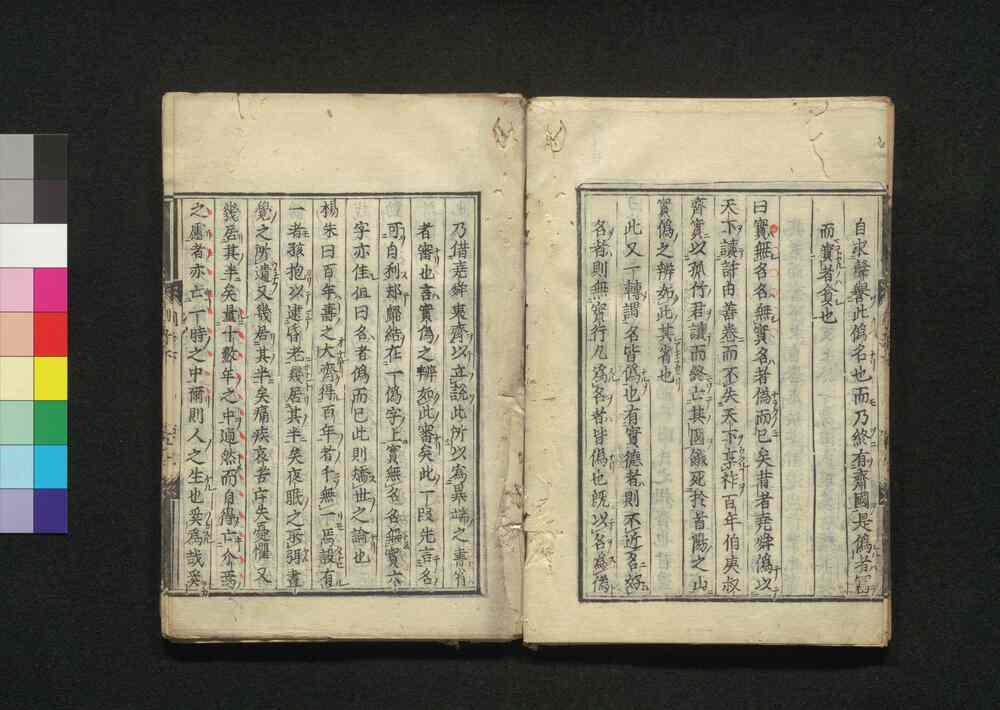 自求聲譽此僞名也而乃終有齊國是僞者冨
而實者貪也
曰實無名名無實名者僞而已矣昔者堯舜僞以
天下讓許由善卷而不失天下享祚百年伯夷叔
齊實以孤竹君讓而終亡其國餓死於首陽之山
實僞之辨如此其省也
此又一轉謂名皆僞也有實德者則不近名好
名者則無實行凡爲名者皆僞也旣以名爲僞
乃借堯舜夷齊以立說此所以爲異端之書省
者審也言實僞之辨如此審矣此一段先言名
可自利却歸結在一僞字上實無名名無實六
字亦佳但曰名者僞而已此則矯世之論也
楊朱曰百年壽之大齊得百年者千無一焉設有
一者孩抱以逮昏老幾居其半矣夜眠之所弭晝
覺之所遺又幾居其半矣痛疾哀苦亡失憂懼又
幾居其半矣量十數年之中逌然而自得亡介焉
之慮者亦亡一時之中爾則人之生也奚爲哉奚